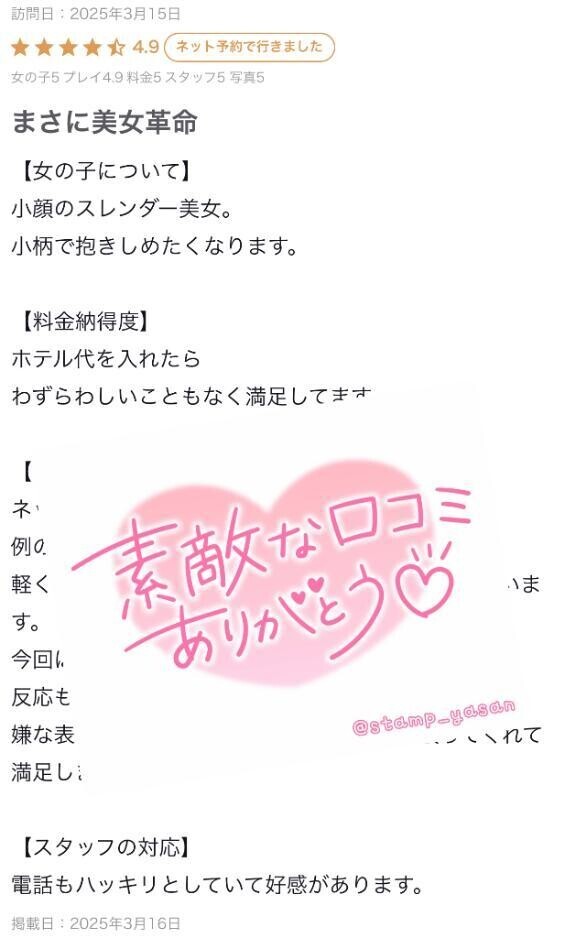 訪問日：2025年3月15日
4.9 ネット予約で行きました
女の子5 プレイ4.9 料金5 スタッフ5 写真5
まさに美女革命
【女の子について】
小顔のスレンダー美女。
小柄で抱きしめたくなります。
【料金納得度】
ホテル代を入れたら
わずらわしいこともなく満足してます
【
ネッ
例の
軽く
います。
今回は
反応も
嫌な表
くれて
満足し
素敵な口コミ
ありがとう
@stamp_yasan
【スタッフの対応】
電話もハッキリとしていて好感があります。
掲載日：2025年3月16日